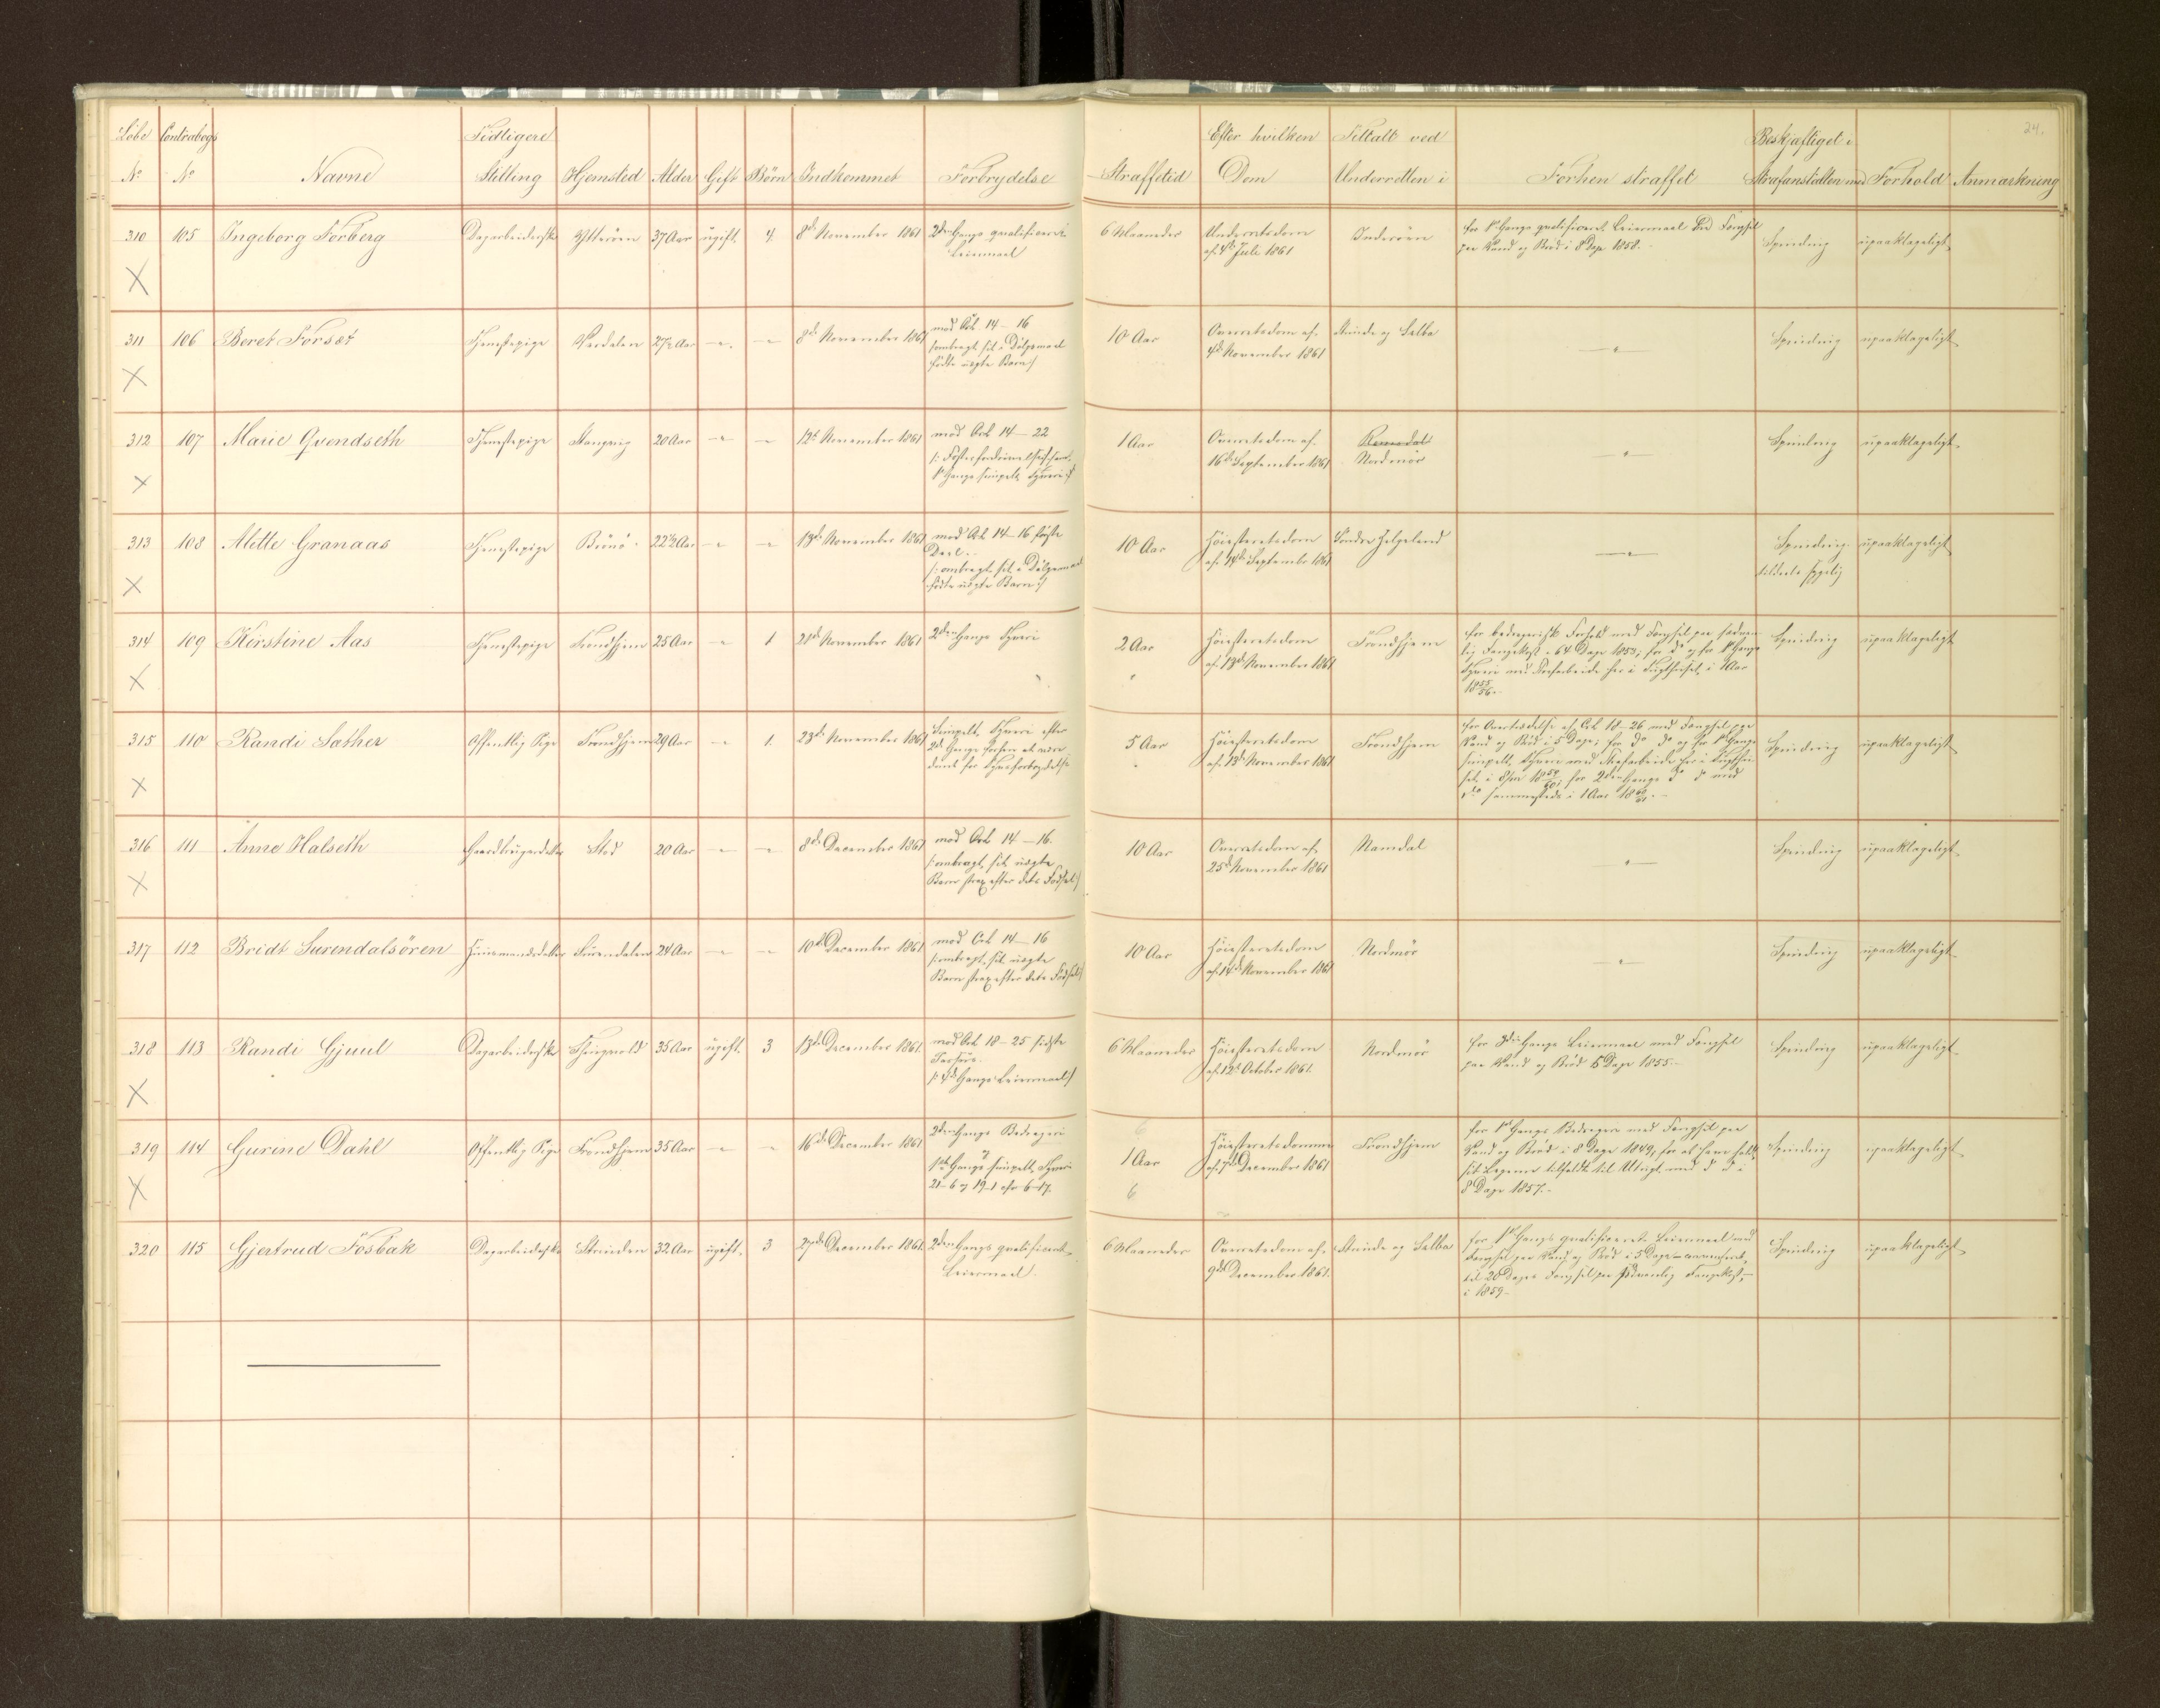 24.
Løbe Contrabogs Tidligere
No No Navne Stilling Hjemsted Alder Gift Børn Indkommet Forbrydelse
Efter hvilken Tiltalt ved Beskjæftiget i
Straffetid Dom Underretten i Forhen straffet Strafanstalten med Forhold Anmærkning
310 105 Ingeborg Forberg Dagarbeiderske Ytterøen 37 Aar ugift 4. 8de November 1861 2den Gangs qvalificeret
Leiermaal
6 Maaneder Underretsdom Inderøen for 1ste Gangs qvalificeret Leiermaal med Fængsel Spinding upaaklageligt
af 4de Juli 1861 paa Vand og Brød i 8 Dage 1858.
X
311 106 Beret Forset Tjenestepige Værdalen 27½ Aar -"- -"- 8de November 1861 mod Crl 14-16
ombragt sit i Dølgsmaal
fødte uægte Barn:/
10 Aar Overretsdom af Strinde og Selbo -"- Spinding upaaklageligt
4de November 1861
X
312 107 Marie Qvendseth Tjenestepige Stangvig 20 Aar -"- -"- 12te November 1861 mod Crl 14-22
1ste Gangs simpelt Tyveri:/
1 Aar Overretsdom af Romsdal -"- Spinding upaaklageligt
16de September 1861 Nordmør
X
313 108 Alette Granaas Tjenestepige Brønø 22½ Aar -"- -"- 13de November 1861 mod Crl 14-16 første
Deel
/:ombragt sit i Dølgsmaal
fødte uægte Barn:/
10 Aar Høiesteretsdom Søndre Helgeland -"- Spinding upaaklageligt
af 14de September 1861 tildeels sygelig
X
314 109 Kirstine Aas Tjenestepige Trondhjem 25 Aar -"- 1 21de November 1861 2den Gangs Tyveri
2 Aar Høiesteretsdom Trondhjem for bedragerisk Forhold med Fængsel paa sædvan- Spinding upaaklageligt
af 13de November 1861 lig Fangekost i 64 Dage 1853; for do og for 1ste Gangs
Tyveri med Strafarbeide her i Tugthuset i 1 Aar
1855/56.
X
315 110 Randi Sæther Offentlig Pige Trondhjem 29 Aar -"- 1. 23de November 1861 Simpelt Tyveri efter
2de Gange forhen at være
dømt for Tyvsforbrydelse
5 Aar Høiesteretsdom Trondhjem for Overtrædelse af Crl 18-26 med Fængsel paa Spinding upaaklageligt
af 13de November 1861 Vand og Brød i 5 Dage; for do do og for 1ste Gangs
simpelt Tyveri med Strafarbeide her i Tugthu-
set i 8 Mr 1859/60; for 2den Gangs do do med
do sammesteds i 1 Aar 1860/61.
X
316 111 Anne Halseth Gaardbrugerdatter Stod 20 Aar -"- -"- 8de December 1861 mod Crl 14-16.
/:ombragt sit uægte
Barn strax efter dets Fødsel:/
10 Aar Overretsdom af Namdal -"- Spinding upaaklageligt
25de November 1861
X
317 112 Bridt Surendalsøren Huusmandsdatter Surendalen 24 Aar -"- -"- 10de December 1861 mod Crl 14-16
/:ombragt sit uægte
Barn strax efter dets Fødsel:/
10 Aar Høiesteretsdom Nordmør -"- Spinding upaaklageligt
af 14de November 1861
318 113 Randi Gjuul Dagarbeiderske Thingvold 35 Aar ugift. 3 13de December 1861. mod Crl 18-25 sidste
Passus.
/:4de Gangs Leiermaal:/
6 Maaneder Høiesteretsdom Nordmør for 3die Gangs Leiermaal med Fængsel Spinding upaaklageligt
af 12te October 1861. paa Vand og Brød 5 Dage 1855.
X
319 114 Gurine Dahl Offentlig Pige Trondhjem 35 Aar -"- -"- 16de December 1861 2den Gangs Bedrageri
og
1ste Gangs simpelt Tyveri
21-6 og 19-1 cfr 6-17.
6
1 Aar Høiesteretsdomme Trondhjem for 1ste Gangs Bedrageri med Fængsel paa Spinding upaaklageligt
af 7de December 1861 Vand og Brød i 8 Dage 1849, for at have holdt
sit Legeme tilfals til Utugt med do do i
8 Dage 1857.
6
X
320 115 Gjertrud Fosbak Dagarbeiderske Strinden 32 Aar ugift. 3 27de December 1861. 2den Gangs qvalificeret
Leiermaal.
6 Maaneder Overretsdom af Strinde og Selbo for 1ste Gangs qvalificeret Leiermaal med Spinding upaaklageligt
9de December 1861. Fængsel paa Vand og Brød i 5 Dage
til 20 Dages Fængsel paa sædvanlig Fangekost,
i 1859.